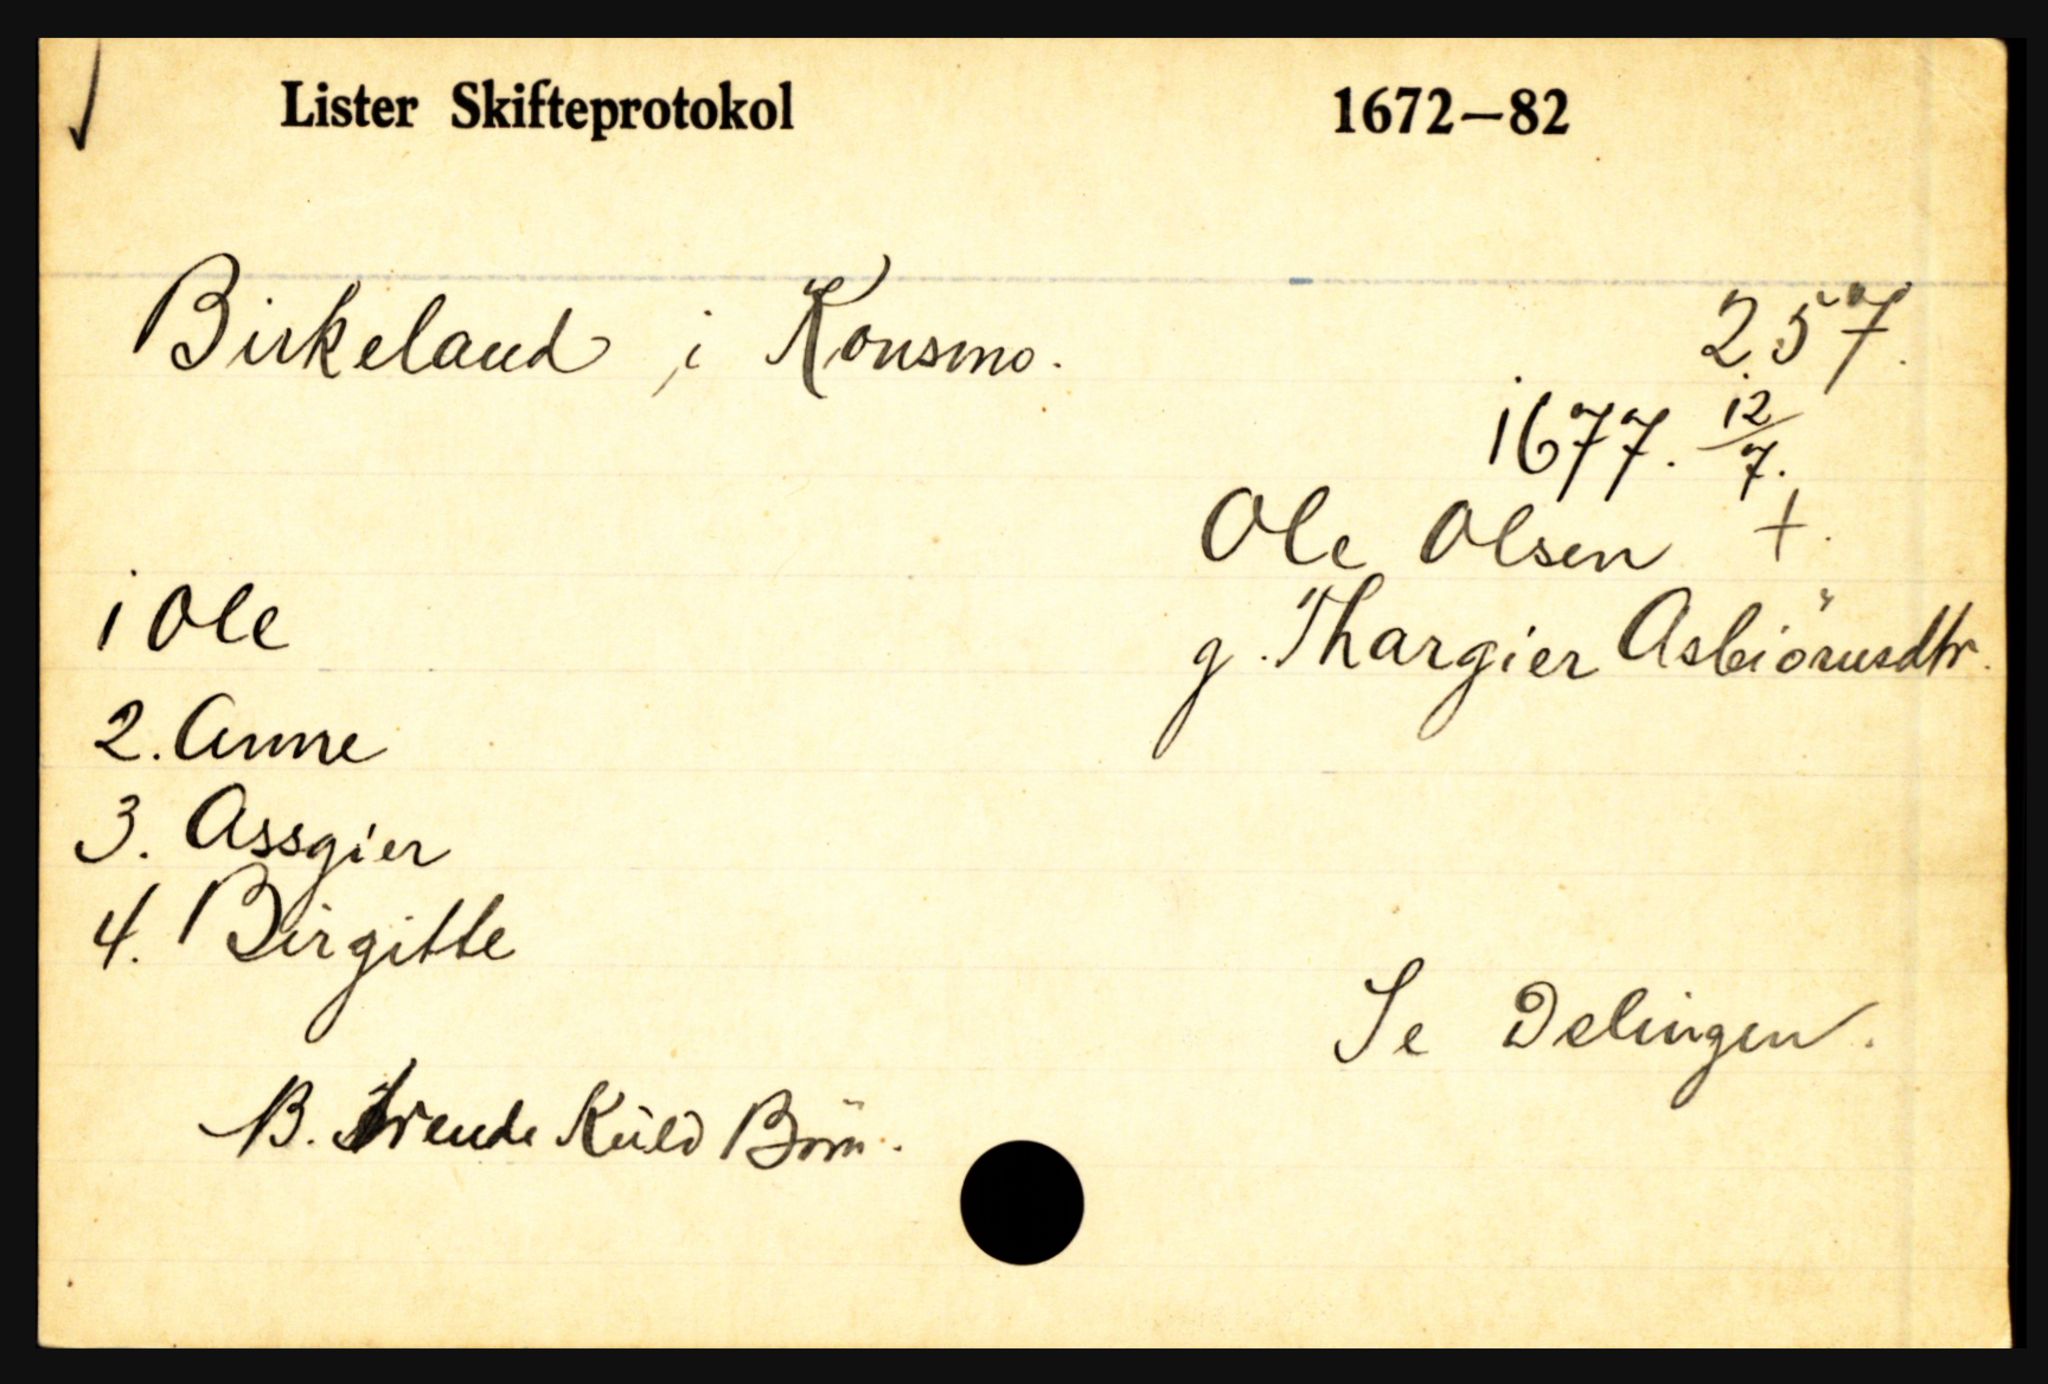 Lister Skifteprotokol 1672–82
Birkeland i Konsmo. 257.
1677. 12/7.
Ole Olsen +.
g. Thargier Asbiörnsdtr.
1 Ole
2. Anne
3. Assgier
4. Birgitte
Se Delingen.
B. Trende Kuld Börn.